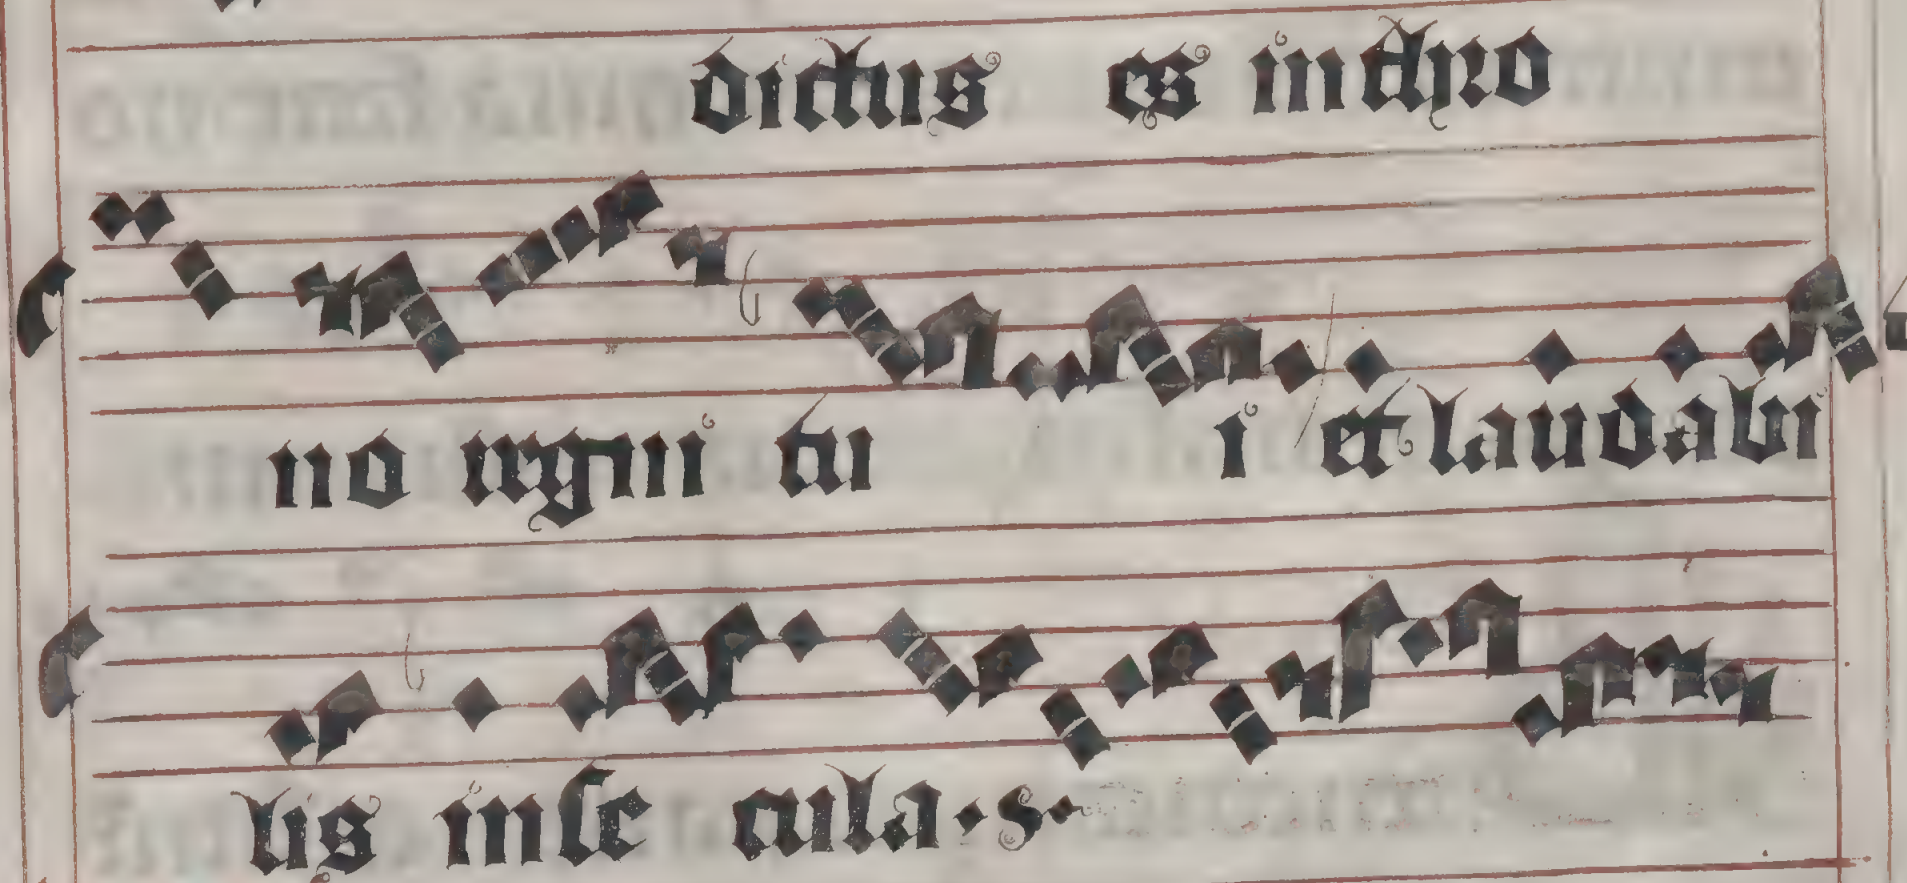 dictus es inthro
no regni tu i et laudabi
lis inse cula · s ·